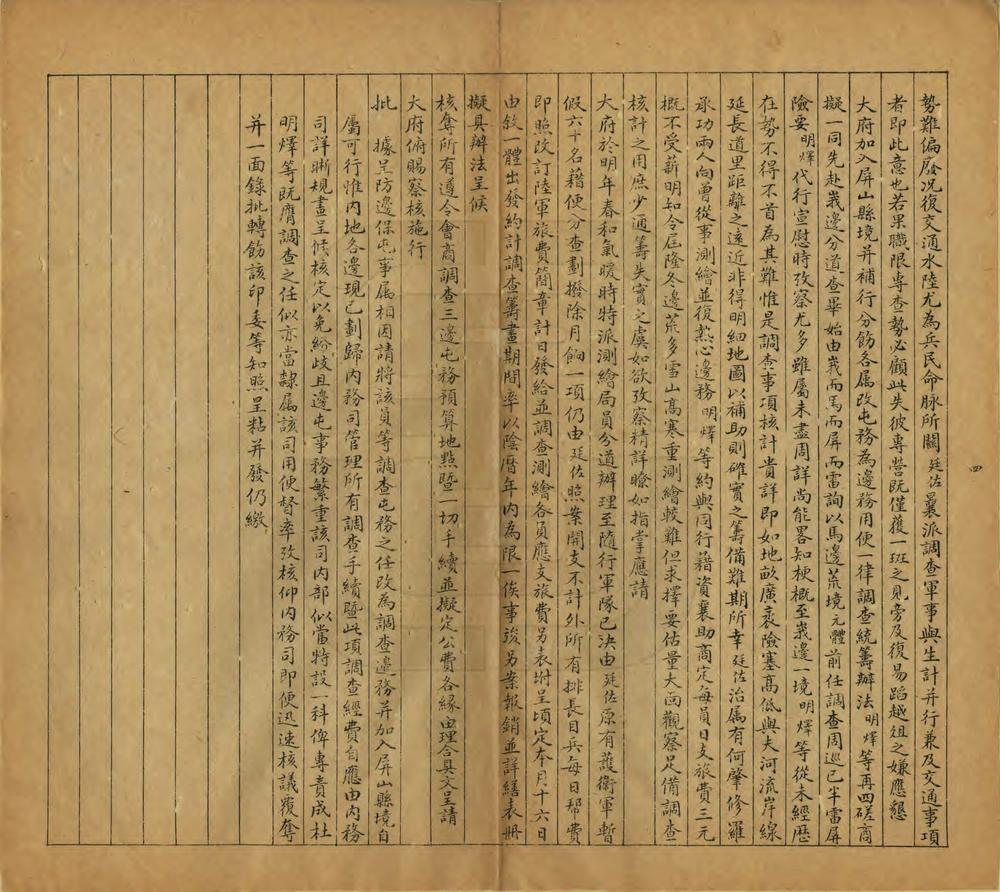 勢難偏廢况復交通水陸尤為兵民命脉所關廷佐曩派調查軍事與生計并行兼及交通事項
者即此意也若果職限專查勢必顧此失彼專營既僅獲一班之見旁及復易蹈越俎之嫌應懇
大府加入屏山縣境并補行分飭各属改屯務為邊務用便一律調查統籌辦法明燡等再四磋商
擬一同先赴峩邊分道查畢始由峩而馬而屏而雷詢以馬邊荒境元體前任調查周巡已半雷屏
險要明燡代行宣慰時攷察尤多雖屬未盡周詳尚能畧知梗概至峩邊一境明燡等從未經歷
在勢不得不首為其難惟是調查事項核計貴詳即如地畝廣袤險塞高低與夫河流岸線
延長道里距離之遠近非得明細地圖以補助則確實之籌備難期所幸廷佐治属有何肇修羅
承功兩人向曾從事測繪並復熱心邊務明燡等約與同行藉資襄助商定每員日支旅費三元
概不受薪明知令屆隆冬邊荒多雪山高寒重測繪較難但求擇要估量大畧觀察足備調查
核計之用庶少通籌失實之虞如欲攷察精詳瞭如指掌應請
大府於明年春和氣暖時特派測繪局員分道辦理至隨行軍隊已決由廷佐原有護衛軍暫
假六十名藉便分查劃撥除月餉一項仍由廷佐照案開支不計外所有排長目兵每日帮費
即照改訂陸軍旅費簡章計日發給並調查測繪各員應支旅費另表坿呈頃定本月十六日
由敘一體出發約計調查籌畫期間率以陰曆年內為限一俟事竣另案報銷並詳繕表冊
擬具辦法呈候
核奪所有遵令會商調查三邊屯務預算地點暨一切手續並擬定公費各緣由理合具文呈請
大府俯賜察核施行
批　據呈防邊保屯事属相因請將該員等調查屯務之任改為調查邊務并加入屏山縣境自
屬可行惟內地各邊現已劃歸內務司管理所有調查手續暨此項調查經費自應由內務
司詳晰規畫呈候核定以免紛歧且邊屯事務繁重該司內部似當特設一科俾專責成杜
明燡等既膺調查之任似亦當隸属該司用便督率攷核仰內務司即便迅速核議覆奪
并一面錄批轉飭該印委等知照呈粘并發仍繳
四